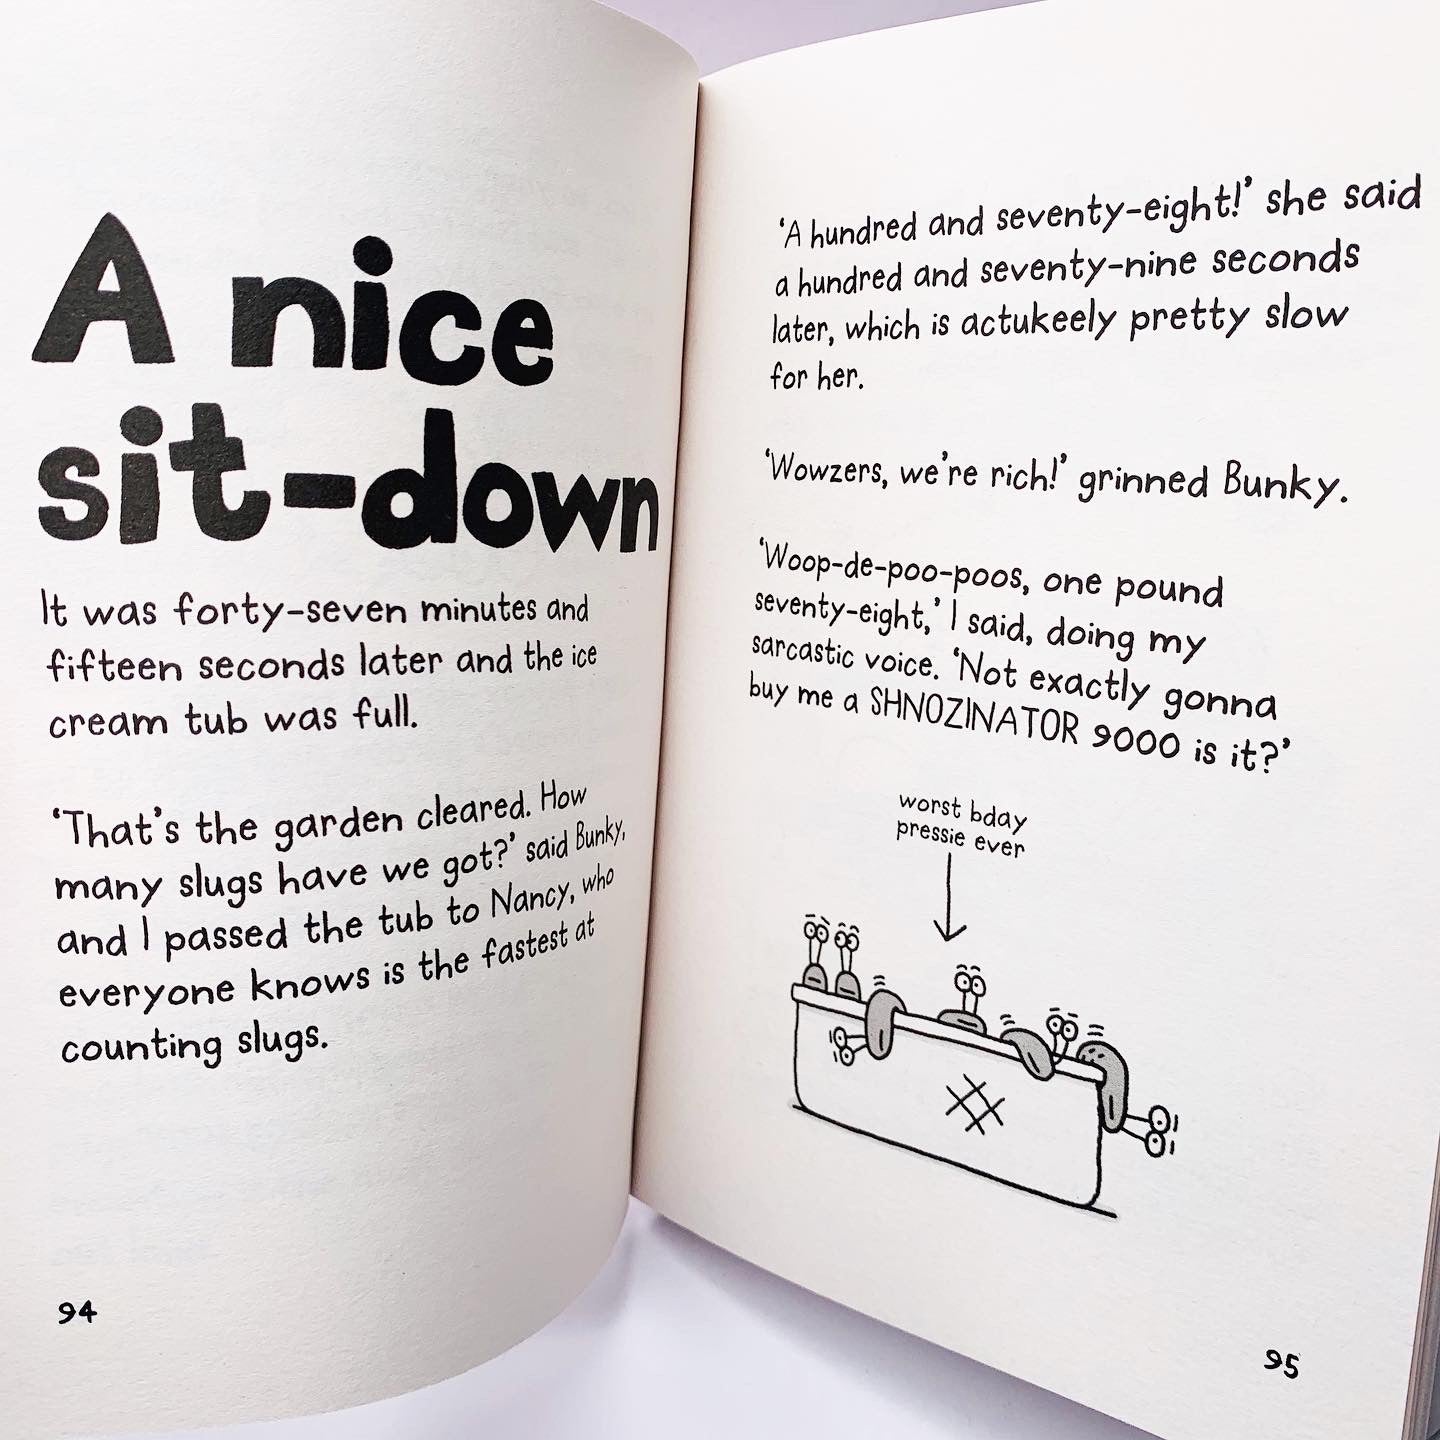 A nice
sit-down
It was forty-seven minutes and
fifteen seconds later and the ice
cream tub was full.
‘That’s the garden cleared. How
many slugs have we got?’ said Bunky,
and I passed the tub to Nancy, who
everyone knows is the fastest at
counting slugs.
94
‘A hundred and seventy-eight!’ she said
a hundred and seventy-nine seconds
later, which is actukeely pretty slow
for her.
‘Wowzers, we’re rich!’ grinned Bunky.
‘Woop-de-poo-poos, one pound
seventy-eight,’ I said, doing my
sarcastic voice. ‘Not exactly gonna
buy me a SHNOZINATOR 9000 is it?’
worst bday
pressie ever
95